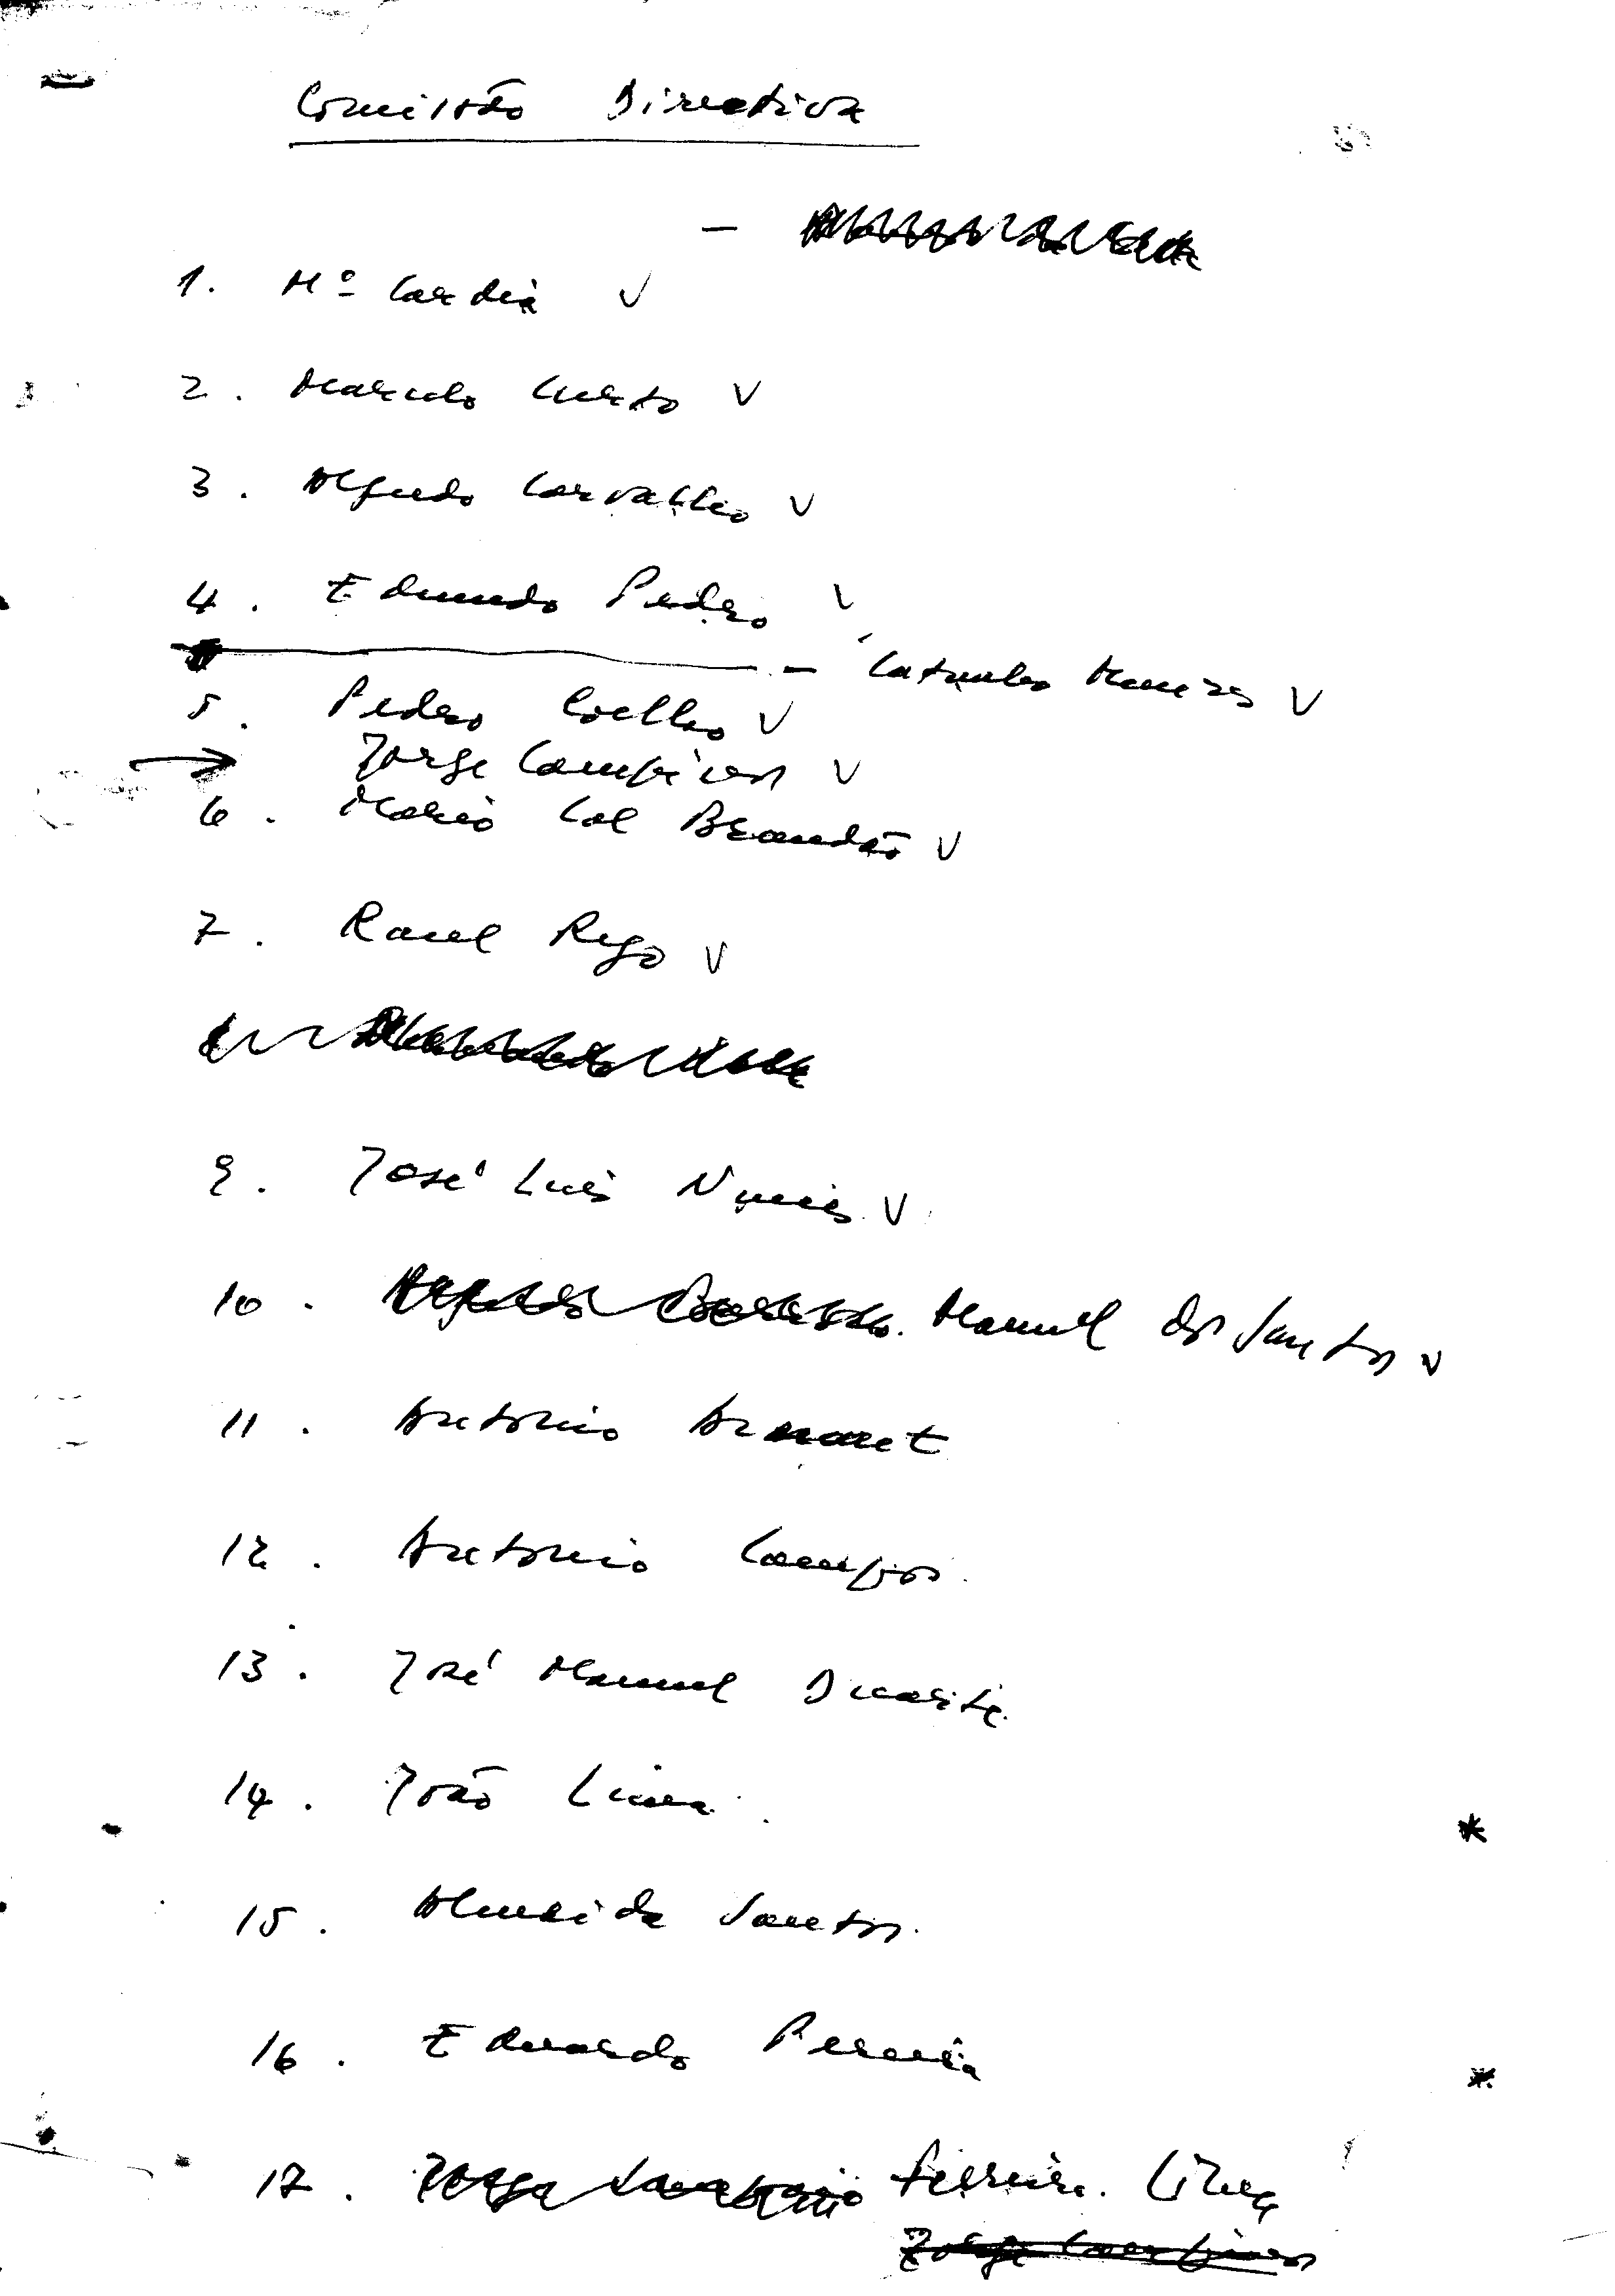 Comissão Directiva
1. Mº Cardia V
2. Marcelo Curto V
3. Alfredo Carvalho V
4. Edmundo Pedro V
- Catanho Menezes V
5. Pedro Coelho V
→ Jorge Campinos V
6. Mário Cal Brandão V
7. Raul Rego V
9. José Luis Nunes V
10. Manuel dos Santos V
11. Antonio Arnaut
12. Antonio Campos
13. José Manuel Duarte
14. João Lima
15. Almeida Santos
16. Eduardo Pereira
17. Jorge Sampaio Ferreira Lima
Jorge Campinos